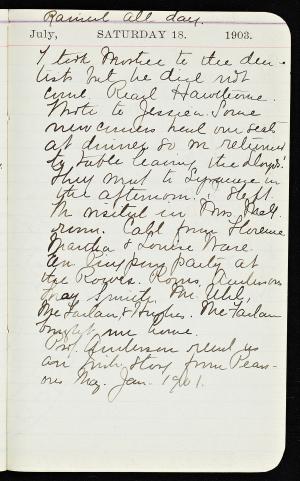 Rained all day.
July, SATURDAY 18. 1903.
I took Mother to the den-
tists but he did not
come. Read Hawthorne.
Wrote to Jessica. Some
newcomers had our seats
at dinner so we returned
to table leaving the Lloyds'.
They went to Syracuse in
the afternoon. I slept.
We visited in Mrs. Hall
room. Call from Florence
Martha & Louise Ware.
A Ping pong party at
the Rogers. Rooms, Anderson
Gray Smith, Mr. Uhl,
McFarlan, & Hughes. McFarlan
brought me home.
Prof. Anderson read us
an Irish story from Pears-
ons Mag. Jan. 1901.